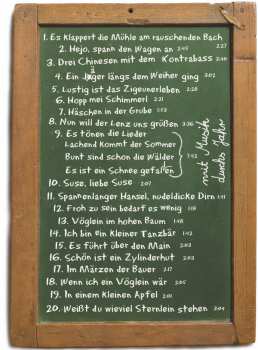 1. Es Klappert die Mühle am rauschenden Bach 2:27
2. Hejo, spann den Wagen an 2:45
3. Drei Chinesen mit dem Kontrabass 2:40
4. Ein Jäger längs dem Weiher ging 2:02
5. Lustig ist das Zigeunerleben 2:28
6. Hopp mei Schimmerl 2:21
7. Häschen in der Grube
8. Nun will der Lenz uns grüßen 2:36
9. Es tönen die Lieder
Lachend Kommt der Sommer
Bunt sind schon die Wälder
Es ist ein Schnee gefallen
mit Musik
durchs Jahr
10. Suse, liebe Suse 2:07
11. Spannenlanger Hansel, nudeldicke Dirn 1:41
12. Froh zu sein bedarf es wenig 1:18
13. Vöglein im hohen Baum 1:48
14. Ich bin ein kleiner Tanzbär 1:42
15. Es führt über den Main 2:02
16. Schön ist ein Zylinderhut 2:03
17. Im Märzen der Bauer 2:17
18. Wenn ich ein Vöglein wär 2:05
19. In einem Kleinen Apfel 2:01
20. Weißt du wieviel Sternlein stehen 2:04